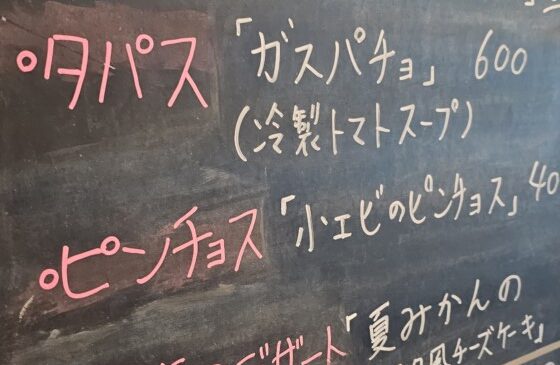 タパス 「ガスパチョ」 600
(冷製トマトスープ)
ピンチョス 「小エビのピンチョス」 40
デザート 「夏みかんの
風チーズケーキ」